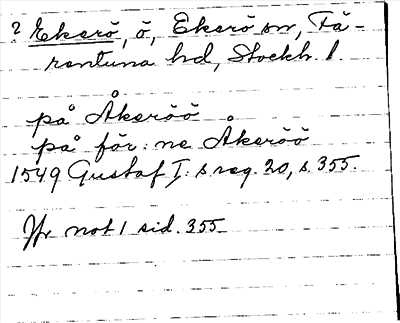 ? Ekerö, ö, Ekerö sn, Fä-
rentuna hd, Stockh. l.
på Åkeröö
på för:ne Åkeröö
1549 Gustaf I:s reg. 20, s. 355.
Jfr not 1 sid. 355